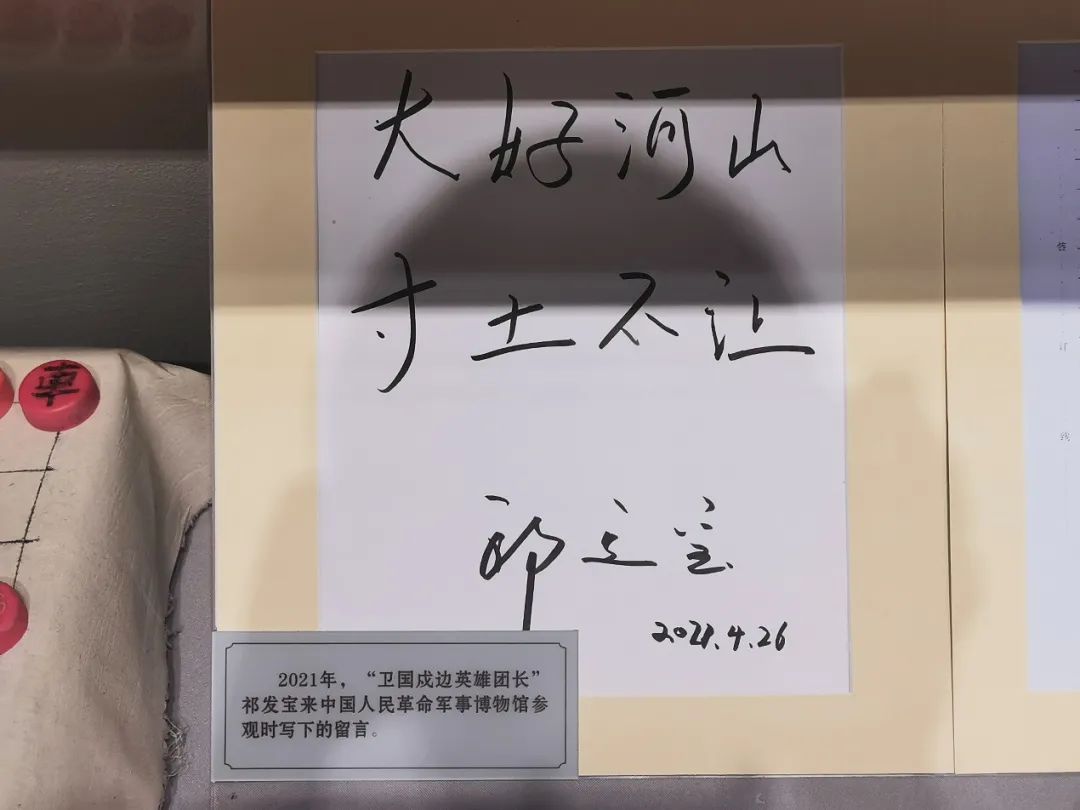 大好河山
寸土不让
祁发宝
2021.4.26
2021年，“卫国戍边英雄团长”
祁发宝来中国人民革命军事博物馆参
观时写下的留言。
車
答
订
线